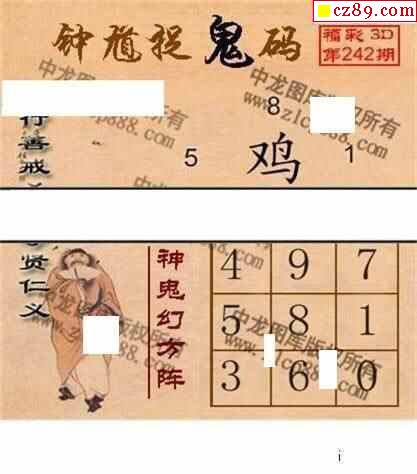 cz89.com
钟馗捉鬼码
福彩3D
第242期
8
5 鸡 1
行善戒
贤仁义
神鬼幻方阵
4 9 7
5 8 1
3 6 0
中龙图库版权所有